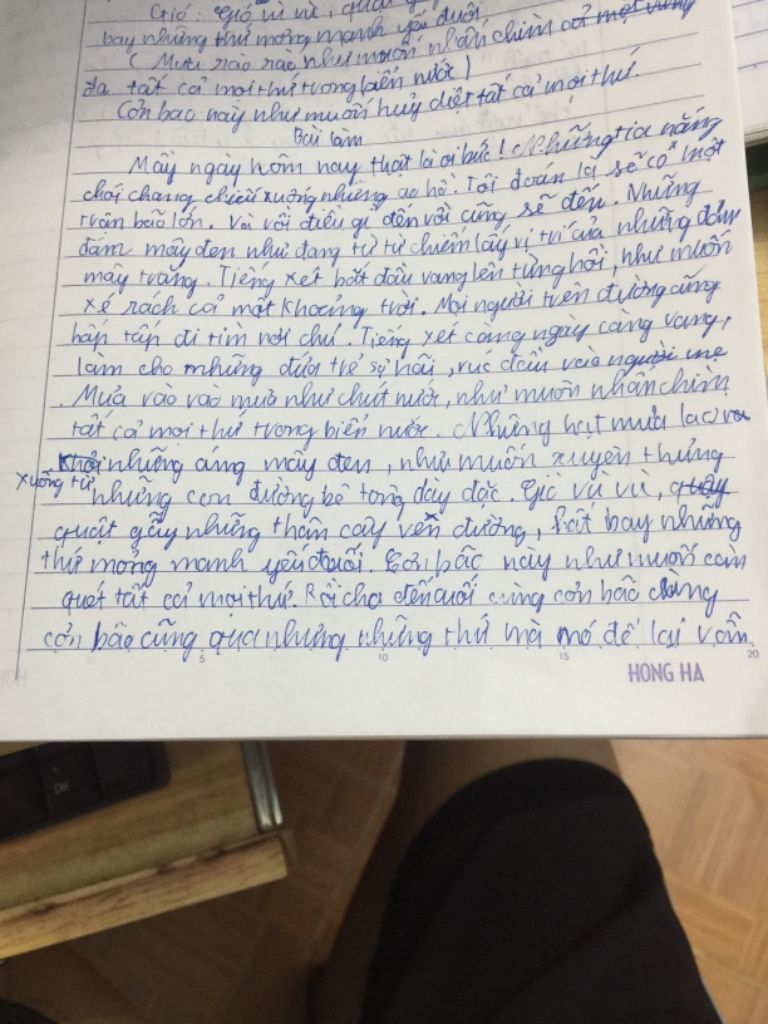 Gió: Gió vù vù, quật gẫy
bay những thứ mỏng manh yếu đuối
( Mưa rào rào như muốn nhấn chìm cả một vùng
đa tất cả mọi thứ trong biển nước )
Cơn bão này như muốn huỷ diệt tất cả mọi thứ.
Bài làm
Mấy ngày hôm nay thật là oi bức! Những tia nắng
chói chang chiếu xuống những ao hồ. Tôi đoán là sẽ có một
trận bão lớn. Và rồi điều gì đến với cũng sẽ đến. Những
đám mây đen như đang từ từ chiếm lấy vị trí của những đám
mây trắng. Tiếng xét bắt đầu vang lên từng hồi, như muốn
xé rách cả một khoảng trời. Mọi người trên đường cũng
hấp tấp đi tìm nơi chú. Tiếng xét càng ngày càng vang,
làm cho những đứa trẻ sợ hãi, rúc đầu vào người mẹ
. Mưa rào rào mưa như chút nước, như muốn nhấn chìm
tất cả mọi thứ trong biển nước. Những hạt mưa lao ra
khỏi những áng mây đen, như muốn xuyên thủng
xuống từ những con đường bê tông dày đặc. Gió vù vù, quây
quật gẫy những thân cây vên đường, hất bay những
thứ mỏng manh yếu đuối. Cơn bão này như muốn càn
quét tất cả mọi thứ. Rồi cho đến cuối cùng cơn bão cũng
cơn bão cũng qua nhưng những thứ mà nó để lại vẫn
5 10 15 20
HONG HA